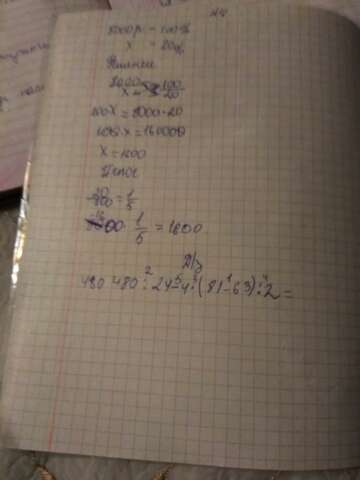 8000р. - 100%
x - 20%
Решение
8000/x = 100/20
100·x = 8000·20
100·x = 160000
x = 1600
20/100 = 1/5
8000 · 1/5 = 1600
Д/з
480 480 : 24 - 4 · (81 - 63) : 2 =